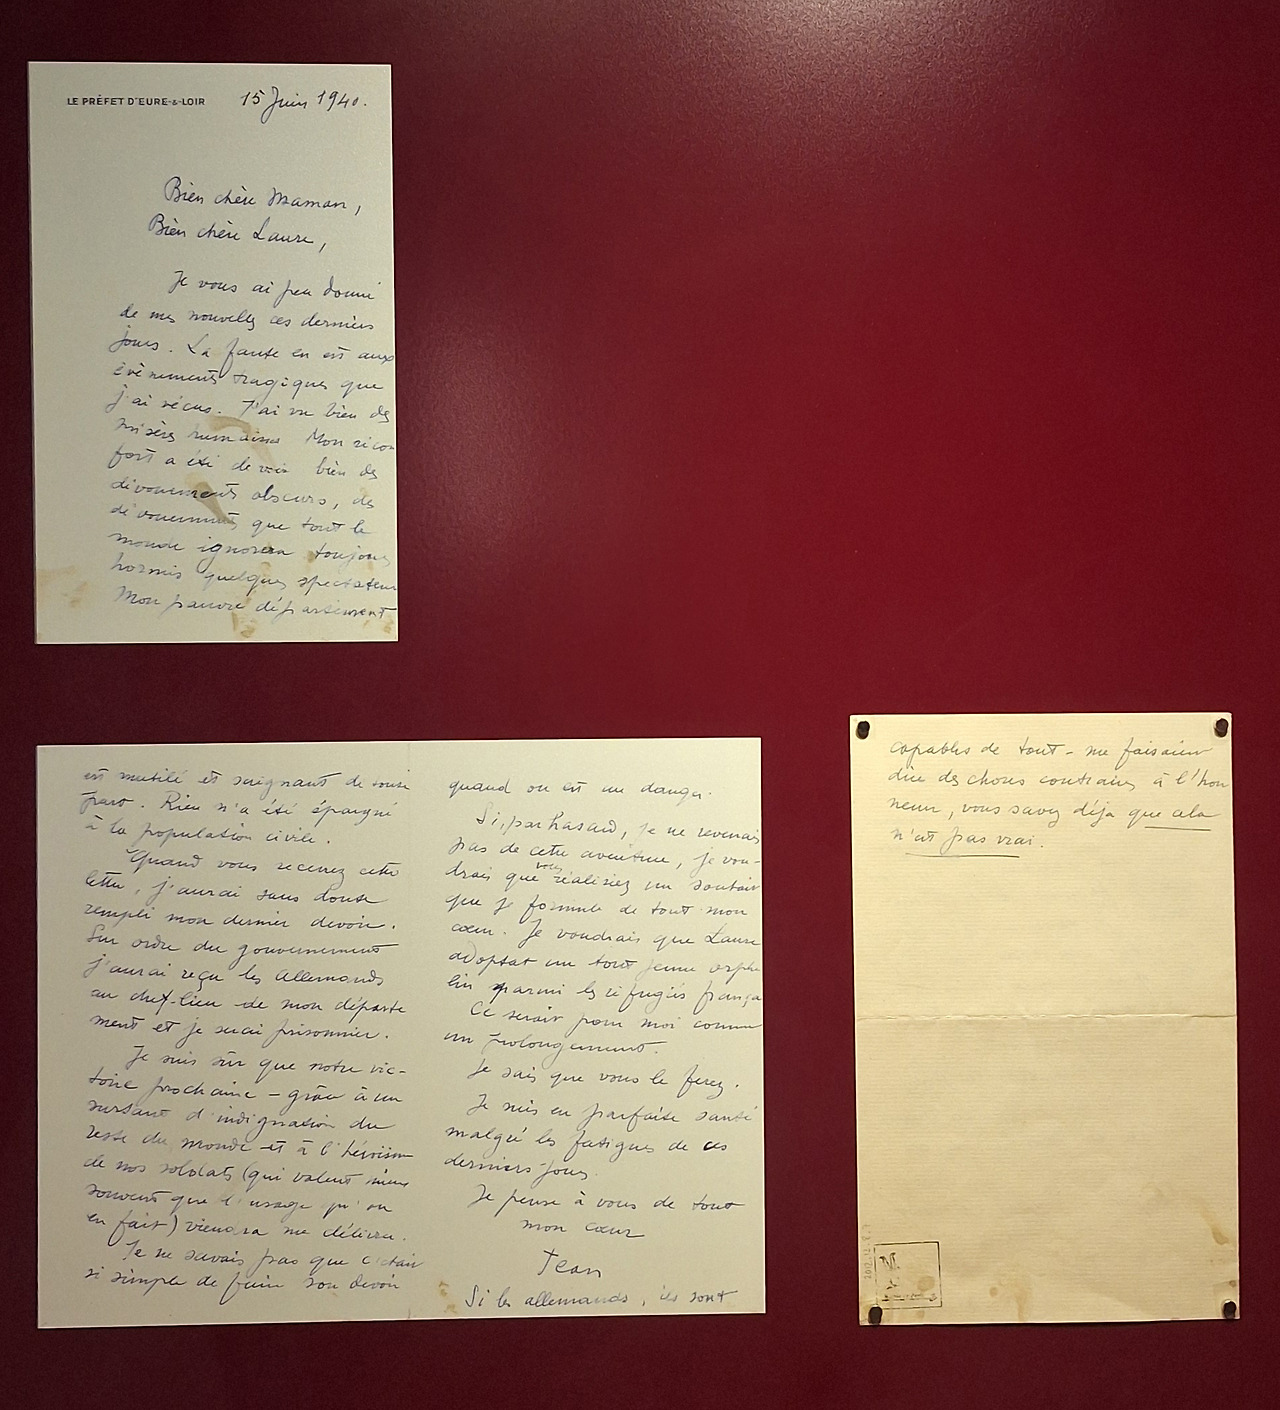 LE PRÉFET D'EURE-&-LOIR
15 Juin 1940.
Bien chère Maman,
Bien chère Laure,
Je vous ai peu donné
de mes nouvelles ces derniers
jours. La faute en est aux
évènements tragiques que
j'ai vécus. J'ai vu bien des
misères humaines Mon récon
fort a été de voir bien des
dévouements obscurs, des
dévouements que tout le
monde ignorera toujours
hormis quelques spectateurs
Mon pauvre département
est mutilé et saignant de toute
part. Rien n'a été épargné
à la population civile.
Quand vous recevrez cette
lettre, j'aurai sans doute
rempli mon dernier devoir.
Sur ordre du gouvernement
j'aurai reçu les Allemands
au chef-lieu de mon départe
ment et je serai prisonnier.
Je suis sûr que notre vic-
toire prochaine - grâce à un
sursaut d'indignation du
reste du monde et à l'héroïsme
de nos soldats (qui valent mieux
souvent que l'usage qu'on
en fait) viendra me délivrer.
Je ne savais pas que c'était
si simple de faire son devoir
quand on est en danger.
Si, par hasard, je ne revenais
pas de cette aventure, je vou-
drais que vous réalisiez un souhait
que je formule de tout mon
cœur. Je voudrais que Laure
adoptat un tout jeune orphe
lin parmi les réfugiés frança
Ce serait pour moi comme
un prolongement.
Je sais que vous le ferez.
Je suis en parfaite santé
malgré les fatigues de ces
derniers jours.
Je pense à vous de tout
mon cœur
Jean
Si les allemands, ils sont
capables de tout - me faisaient
dire des choses contraires à l'hon
neur, vous savez déja que cela
n'est pas vrai.